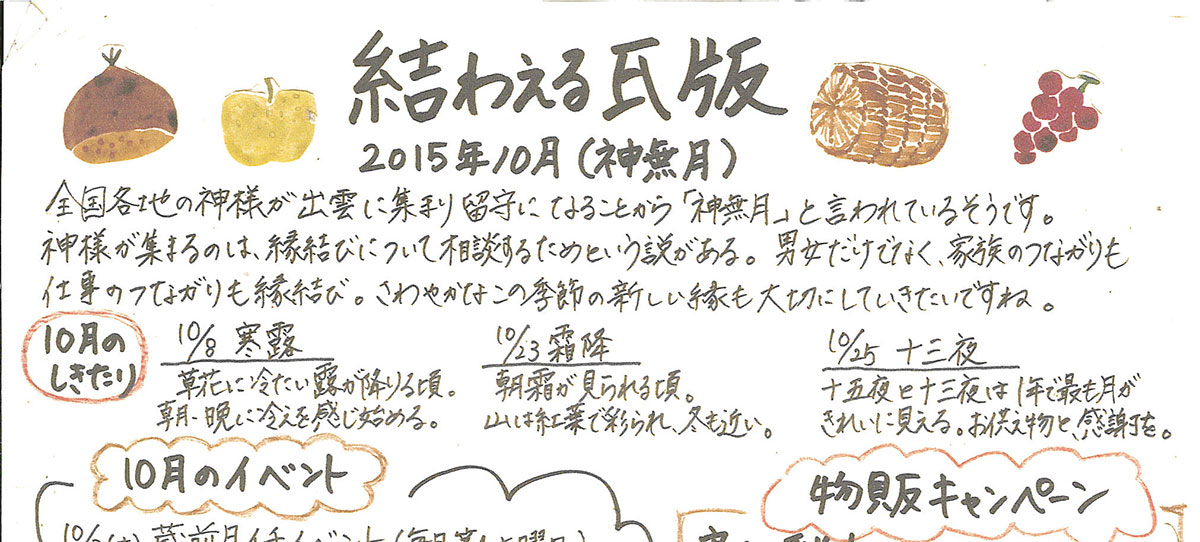 結わえる瓦版
2015年10月(神無月)
全国各地の神様が出雲に集まり留守になることから「神無月」と言われているそうです。
神様が集まるのは、縁結びについて相談するためという説がある。男女だけでなく、家族のつながりも
仕事のつながりも縁結び。さわやかなこの季節の新しい縁も大切にしていきたいですね。
10月の
しきたり
10/8 寒露
草花に冷たい露が降りる頃。
朝・晩に冷えを感じ始める。
10/23 霜降
朝霜が見られる頃。
山は紅葉で彩られ、冬も近い。
10/25 十三夜
十五夜と十三夜は1年で最も月が
きれいに見える。お供え物と、感謝を。
10月のイベント
物販キャンペーン